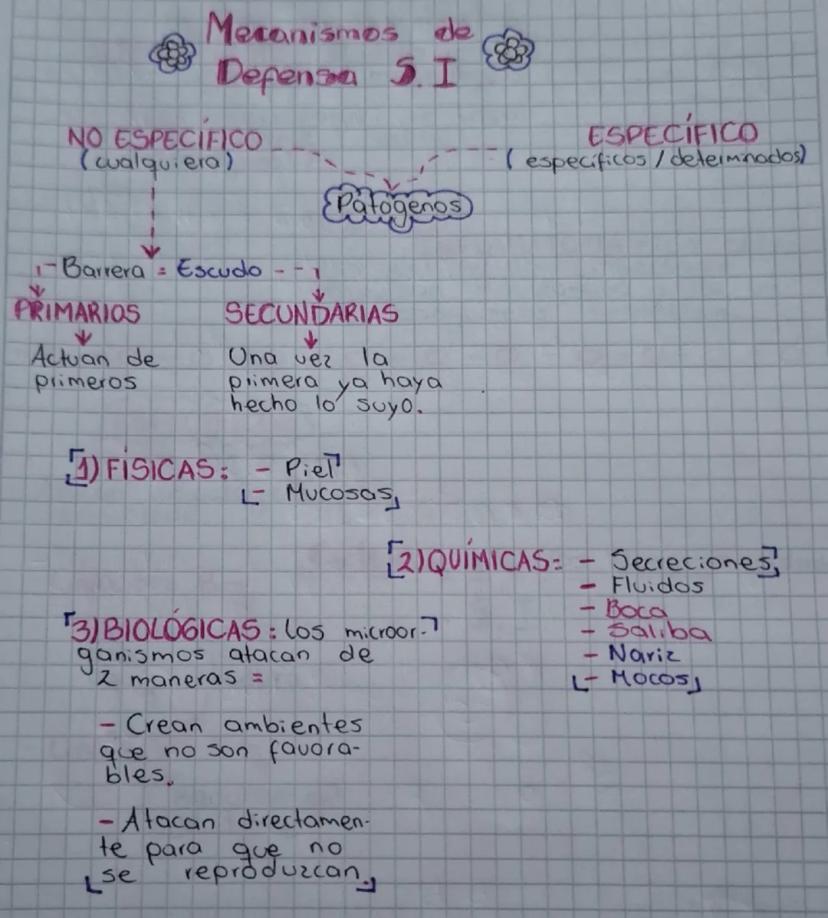 Mecanismos de
Defensa S.I
NO ESPECÍFICO
(cualquiera)
ESPECÍFICO
(especificos/determinados)
Patogenos
- Barrera = Escudo - -
PRIMARIOS
Actuan de
primeros
SECUNDARIAS
Una vez la
primera ya haya
hecho lo suyo.
1) FÍSICAS: - Piel
- Mucosas
2) QUÍMICAS: - Secreciones
- Fluidos
- Boca
- Saliba
- Nariz
- Mocos
3) BIOLÓGICAS: los microor-
ganismos atacan de
2 maneras =
- Crean ambientes
que no son favora-
bles.
- Atacan directamen-
te para que no
se reproduzcan.